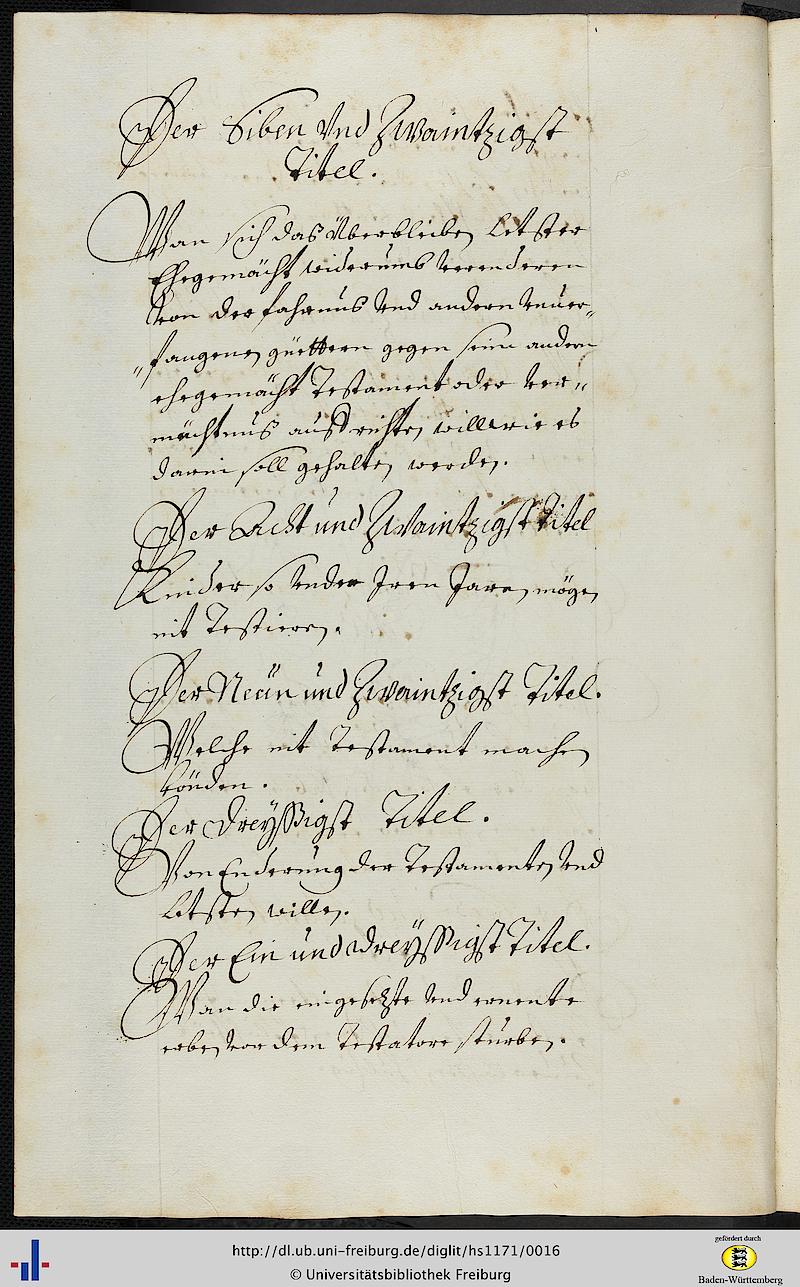 Der Siben Vnd Zwaintzigst
Titel.
Wan sich das Überbleiben Letster
Ehegemächt widerumb verenderen
von der fahrnus Vnd andern Vnuer„
„fangenen güettern gegen seim andern
ehegemächt Testament oder Ver„
mächtnus auffrichten will wie es
darin soll gehalten werden.
Der Acht und Zwaintzigst Titel
Kinder so Vnder Iren Jaren mögen
nit Testieren.
Der Neün und Zwaintzigst Titel.
Welche nit Testament machen
könden.
Der dreyssigst Titel.
Von Enderung der Testamenten Vnd
Letsten willen.
Der Ein und dreyssigst Titel.
Wan die eingesetzte Vnd ernente
erben vor dem Testatore stürben.
http://dl.ub.uni-freiburg.de/diglit/hs1171/0016
© Universitätsbibliothek Freiburg
gefördert durch
Baden-Württemberg